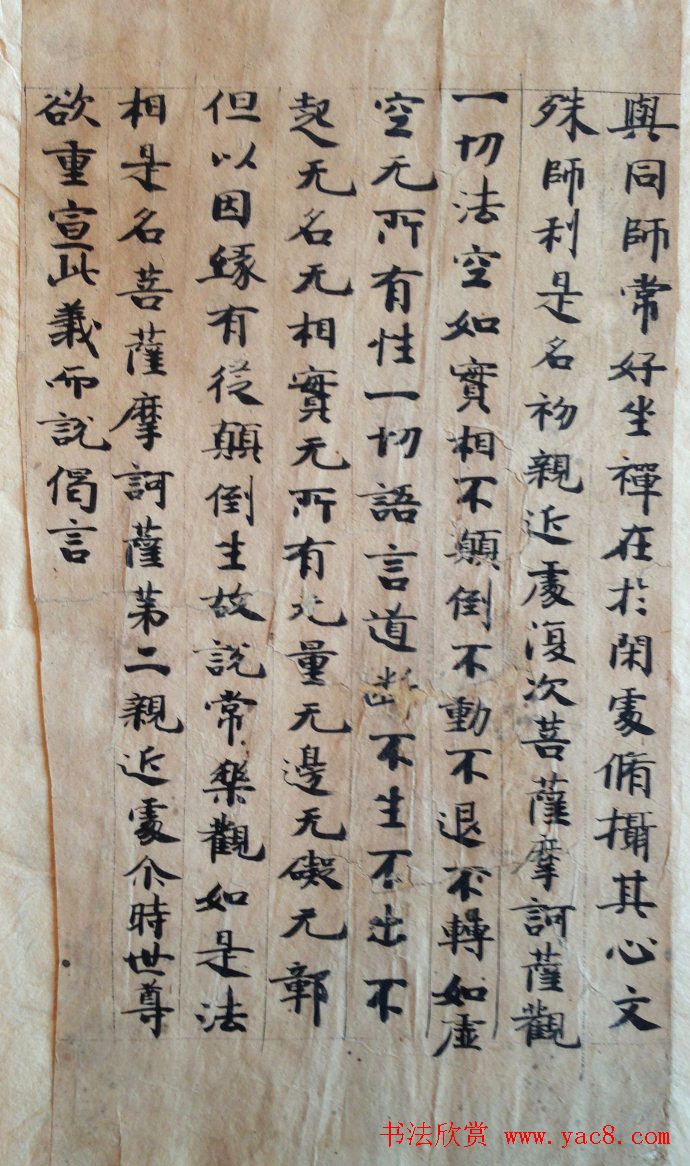 與同師常好坐禪在於閑處脩攝其心文
殊師利是名初親近處復次菩薩摩訶薩觀
一切法空如實相不顛倒不動不退不轉如虛
空无所有性一切語言道断不生不出不
起无名无相實无所有无量无邊无礙无鄣
但以因緣有從顛倒生故說常樂觀如是法
相是名菩薩摩訶薩第二親近處尒時世尊
欲重宣此義而說偈言
书法欣赏 www.yac8.com